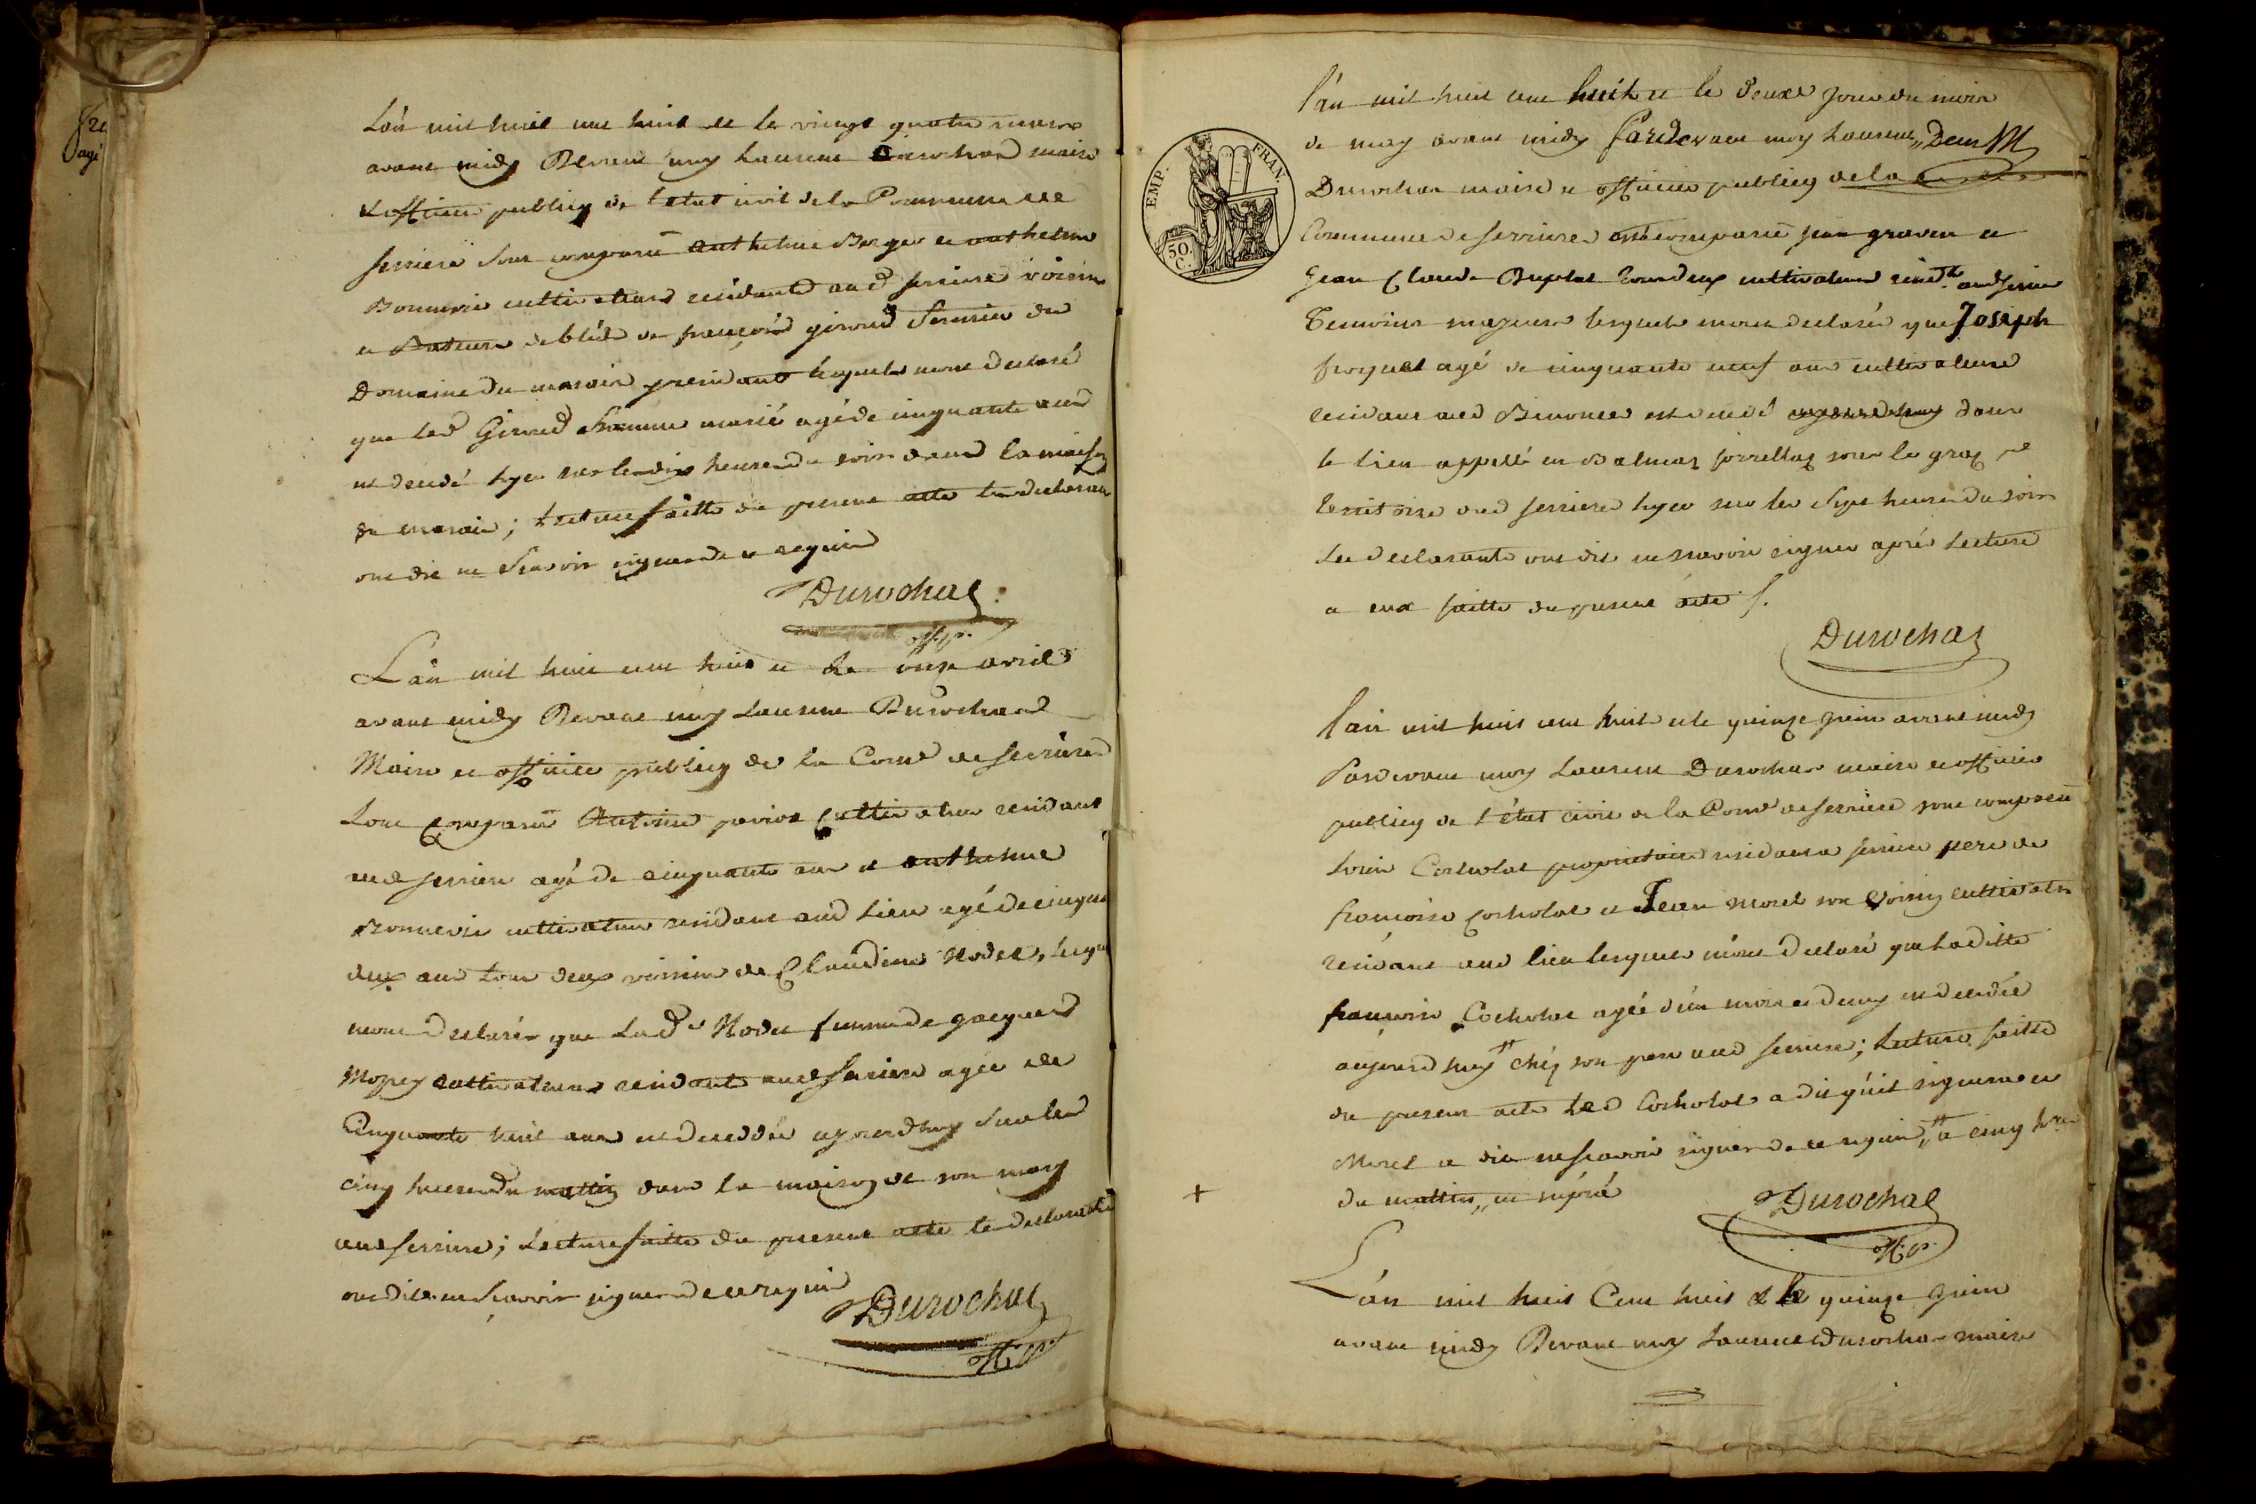 fre
agé
L'an mil huit cent huit et le vingt quatre mars
avant midy Devant moy Laurent Durochat maire
& officier publicq de l'etat civil de la Commune de
serriere sont comparu anthelme Berger et anthelme
Bonnevie cultivateurs residants aud serriere voisins
et Bateurs de bléd de françois giroud fermier du
Domaine du marais presidant lesquels mont declaré
que led Giroud homme marié agé de cinquante ans
est decedé hyer sur les dix heures du soir dans la maison
du marais ; Lecture faitte du present acte les declarants
ont dit ne Scavoir signer de ce requis
Durochat
off. p.
L'an mil huit cent huit et le onze avril
avant midy Devant moy Laurent Durochat
Maire et officier publicq de la Comne de serrieres
sont comparu Antoine cultivateur residant
aud serriere agé de cinquante ans et anthelme
Bonnevie cultivateur residant aud lieu agé de cinquante
deux ans tous deux voisins de Claudine Nodet, lesquels
mont declarés que Lade Nodet femme de jacques
cultivateurs residants aud serriere agée de
Cinquante huit ans est decedée aujourdhuy sur les
cinq heures du mattin dans la maison de son mary
aud serriere ; Lecture faitte du present acte les declarants
ont dits ne Scavoir signer de ce requis
Durochat
off. p.
EMP. FRAN.
50 C.
l'an mil huit cent huit et le deuxe jour du mois
de may avant midy Pardevant moy Laurent
Durochat maire et officier publicq de la
Commune de serrieres ont comparu graven et
Jean Claude Buplat tous deux cultivateurs residts aud serriere
Temoins majeurs lesquels mont declarés que Joseph
froquet agé de cinquante neuf ans cultivateur
residant aud est decedé dans
le lieu appellé en sous le
territoire dud serrieres hyer sur les Sept heures du soir
Les declarants ont dit ne scavoir signer aprés Lecture
a eux faitte du present acte
Durochat
l'an mil huit cent huit et le quinze juin avant midy
Pardevant moy Laurent Durochat maire et officier
publicq de l'état civil de la Comne de serriere sont comparu
Cocholat proprietaire residant a serriere pere de
françoise Cocholat et Jean Morel son voisin cultivateur
residant aud lieu lesquels m'ont declaré que laditte
françoise Cocholat agée d'un mois et demy est decedée
aujourdhuy chéz son pere aud serriere ; Lecture faitte
du present acte Led Cocholat a dit qu'il signera et
Morel a dit ne scavoir signer de ce requis, a cinq hres
+ du mattin
Durochat
off. p.
L'an mil huit Cent huit & le quinze juin
avant midy Devant moy Laurent Durochat maire